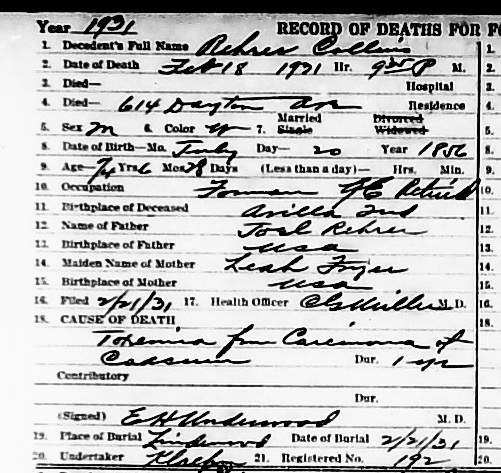 Year 1931 RECORD OF DEATHS FOR F
1. Decedent's Full Name Rehrer Collins
2. Date of Death Feb 18 1931 Hr. 9 35 P M.
3. Died— Hospital
4. Died— 614 Dayton Ave Residence
5. Sex M 6. Color W 7. Married Single Divorced Widowed
8. Date of Birth—Mo. July Day— 20 Year 1856
9. Age— 74 Yrs 6 Mos 28 Days (Less than a day)— Hrs. Min.
10. Occupation Forman G E Retired
11. Birthplace of Deceased Avilla Ind
12. Name of Father Joel Rehrer
13. Birthplace of Father USA
14. Maiden Name of Mother Leah
15. Birthplace of Mother USA
16. Filed 2/21/31 17. Health Officer Miller M. D.
18. CAUSE OF DEATH
Toxemia from Carcinoma of
Dur. 1 yr
Contributory
Dur.
(Signed) E H Underwood M. D.
19. Place of Burial Lindenwood Date of Burial 2/21/31
20. Undertaker 21. Registered No. 192
1.
2.
3.
4.
5.
8.
9.
10.
11.
12.
13.
14.
15.
16.
18.
19.
20.